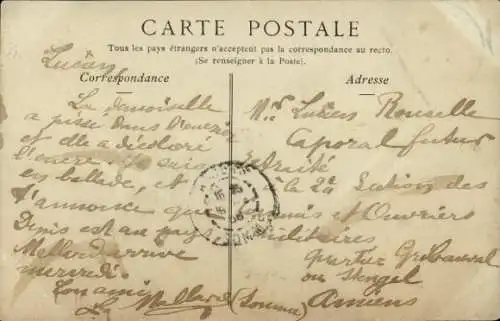 CARTE POSTALE
Tous les pays étrangers n'acceptent pas la correspondance au recto.
(Se renseigner à la Poste).
Correspondance
Lucien
La demoiselle
a pissé dans l'encrier
et elle a décloré
l'encre. Je suis
en ballade, et
t'annonce que
Denis est au pays
Mallard arrive
mercredi.
Ton ami
Mallard
Adresse
Mr Lucien Rouselle
Caporal futur
retraité
la 2e Section des
Commis et Ouvriers
militaires
quartier Gribeauval
ou Stengel
Amiens
(Somme)